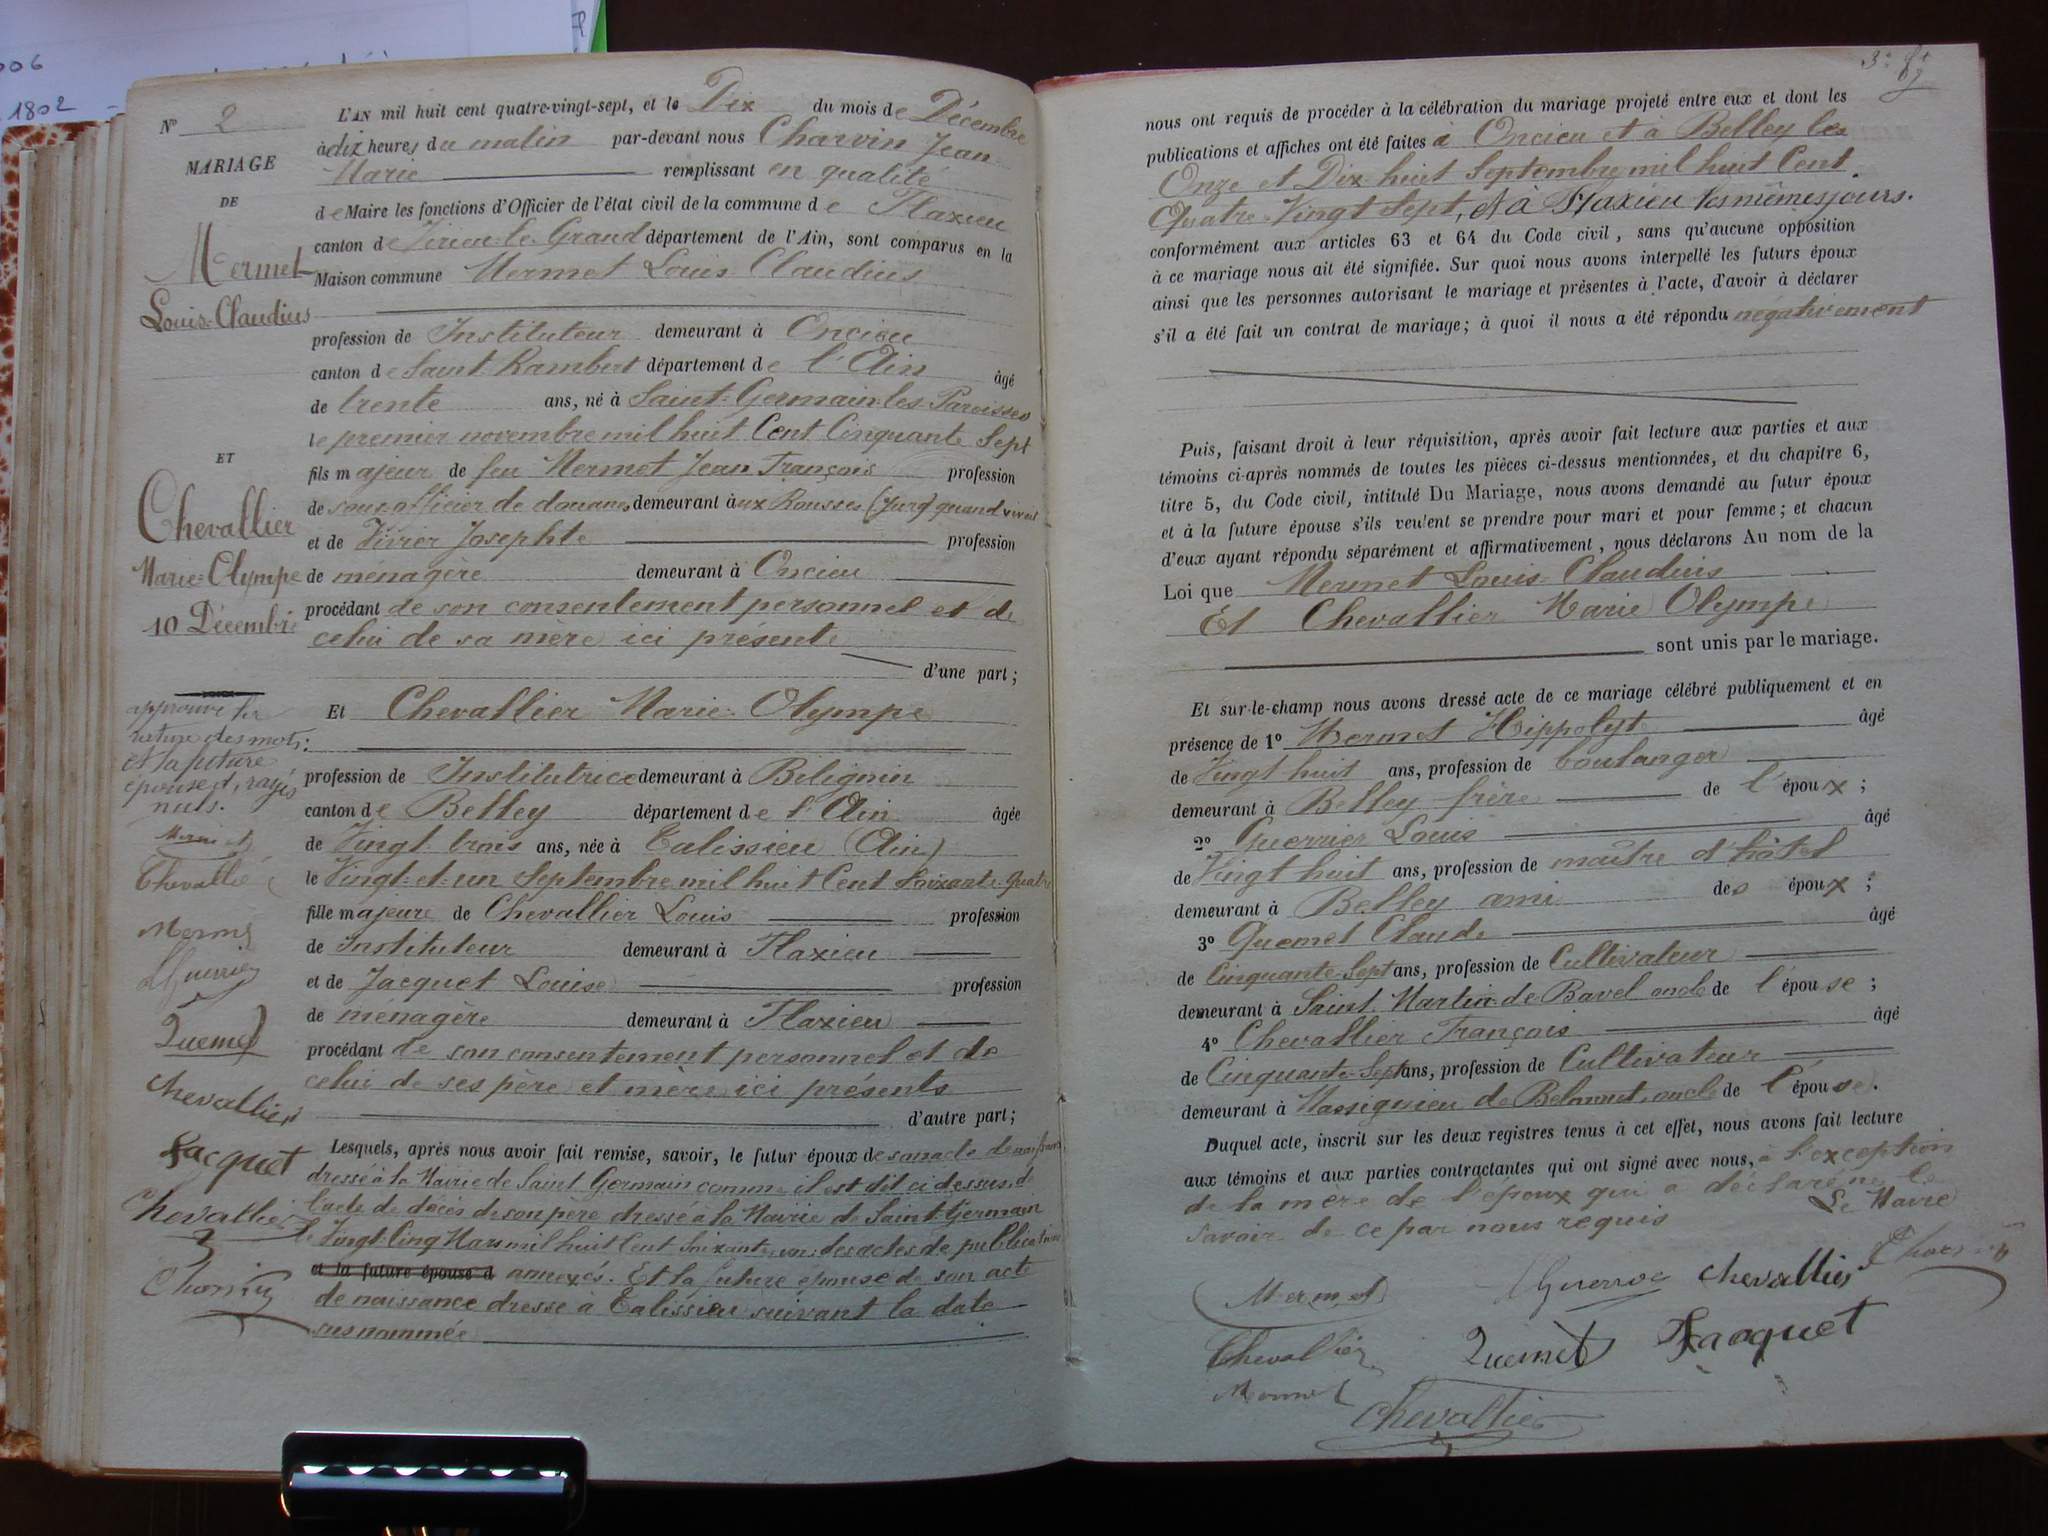 006
1802 -
Nº 2
MARIAGE
DE
Mermet
Louis-Claudius
ET
Chevallier
Marie-Olympe
10 Décembre
approuvé la
rature des mots:
et la future
épouse d, rayés
nuls.
Mermet
Chevallié
Mermet
LGuerrier
Quemet
Chevallier
Jacquet
Chevallier
Charvin
L'AN mil huit cent quatre-vingt-sept, et le Dix du mois de Décembre
à dix heures du matin par-devant nous Charvin Jean
Marie remplissant en qualité
de Maire les fonctions d'Officier de l'état civil de la commune de Flaxieu
canton de Virieu-le-Grand département de l'Ain, sont comparus en la
Maison commune Mermet Louis Claudius
profession de Instituteur demeurant à Oncieu
canton de Saint Rambert département de l'Ain âgé
de trente ans, né à Saint-Germain-les-Paroisses
le premier novembre mil huit Cent Cinquante Sept
fils majeur de feu Mermet Jean François profession
de sous-officier de douanes demeurant aux Rousses (Jura) quand vivait
et de Vivier Josephte profession
de ménagère demeurant à Oncieu
procédant de son consentement personnel et de
celui de sa mère ici présente
d'une part;
Et Chevallier Marie-Olympe
profession de Institutrice demeurant à Bélignin
canton de Belley département de l'Ain âgée
de Vingt-trois ans, née à Talissieu (Ain)
le Vingt-et-un Septembre mil huit Cent Soixante-Quatre
fille majeure de Chevallier Louis profession
de Instituteur demeurant à Flaxieu
et de Jacquet Louise profession
de ménagère demeurant à Flaxieu
procédant de son consentement personnel et de
celui de ses père et mère ici présents
d'autre part;
Lesquels, après nous avoir fait remise, savoir, le futur époux de son acte de naissance
dressé à la Mairie de Saint Germain comme il est dit ci dessus, de
l'acte de décès de son père dressé à la Mairie de Saint-Germain
le Vingt-Cinq Mars mil huit Cent Soixante-un; des actes de publication
et la future épouse d annexés. Et la future épouse de son acte
de naissance dressé à Talissieu suivant la date
susnommée
nous ont requis de procéder à la célébration du mariage projeté entre eux et dont les
publications et affiches ont été faites à Oncieu et à Belley les
Onze et Dix-huit Septembre mil huit Cent
Quatre-Vingt Sept, et à Flaxieu les mêmes jours.
conformément aux articles 63 et 64 du Code civil, sans qu'aucune opposition
à ce mariage nous ait été signifiée. Sur quoi nous avons interpellé les futurs époux
ainsi que les personnes autorisant le mariage et présentes à l'acte, d'avoir à déclarer
s'il a été fait un contrat de mariage; à quoi il nous a été répondu négativement
Puis, faisant droit à leur réquisition, après avoir fait lecture aux parties et aux
témoins ci-après nommés de toutes les pièces ci-dessus mentionnées, et du chapitre 6,
titre 5, du Code civil, intitulé Du Mariage, nous avons demandé au futur époux
et à la future épouse s'ils veulent se prendre pour mari et pour femme; et chacun
d'eux ayant répondu séparément et affirmativement, nous déclarons Au nom de la
Loi que Mermet Louis-Claudius
Et Chevallier Marie Olympe
sont unis par le mariage.
Et sur-le-champ nous avons dressé acte de ce mariage célébré publiquement et en
présence de 1º Mermet Hippolyte âgé
de Vingt huit ans, profession de boulanger
demeurant à Belley frère de l'époux;
2º Guerrier Louis âgé
de Vingt huit ans, profession de maître d'hôtel
demeurant à Belley ami des époux;
3º Quemet Claude âgé
de Cinquante-Sept ans, profession de Cultivateur
demeurant à Saint-Martin-de-Bavel oncle de l'épouse;
4º Chevallier François âgé
de Cinquante-Sept ans, profession de Cultivateur
demeurant à Massignieu de Belmont, oncle de l'épouse.
Duquel acte, inscrit sur les deux registres tenus à cet effet, nous avons fait lecture
aux témoins et aux parties contractantes qui ont signé avec nous, à l'exception
de la mère de l'époux qui a déclaré ne le
savoir de ce par nous requis Le Maire
Mermet LGuerrier Chevallier Charvin
Chevallier Quemet Jacquet
Mermet
Chevallier